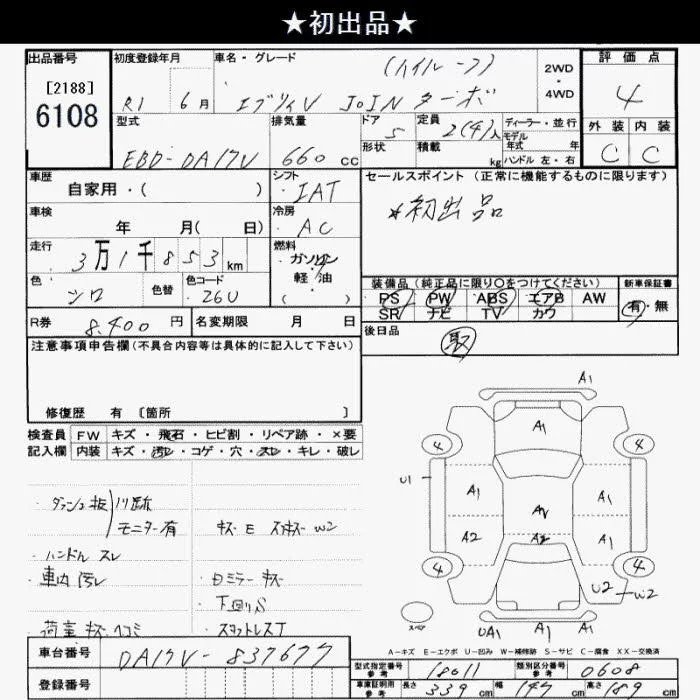 ★初出品★
出品番号
[2188]
6108
初度登録年月
R1 6月
車名・グレード
(ハイルーフ)
エブリィV JOINターボ
2WD
・
4WD
評価点
4
外装 内装
C C
型式
EBD-DA17V
排気量
660 cc
ドア
5
形状
定員
2(4)人
積載
kg
ディーラー・並行
モデル
年式 年
ハンドル 左・右
車歴
自家用・( )
シフト
IAT
セールスポイント(正常に機能するものに限ります)
*初出品
車検
年 月( 日)
冷房
AC
走行
3万1千853km
燃料
ガソリン
軽・油
( )
色
シロ
色替
色コード
26U
装備品(純正品に限り○をつけてください)
PS PW ABS エアB AW
SR ナビ TV カワ
新車保証書
有・無
R券
8,400円
名変期限 月 日
後日品
取
注意事項申告欄(不具合内容等は具体的に記入して下さい)
修復歴 有 〔箇所 〕
検査員 FW キズ・飛石・ヒビ割・リペア跡・×要
記入欄 内装 キズ・汚レ・コゲ・穴・スレ・キレ・破レ
モニター有
キズE
W2
ハンドル スレ
車内 汚レ
ロミラー キズ
下回りS
荷室 キズ ヘコミ
スタットレスT
A1
4 A1 4
U1
A1 A1
A2
A2 A2 A1
4 4
U2
W2
スペア
UA1 A1 A1
A-キズ E-エクボ U-凹み W-補修跡 S-サビ C-腐食 XX-交換済
車台番号
DA17V-837677
登録番号
型式指定番号
参考
18011
類別区分番号
参考
0608
車庫証明用
参考
長さ 339cm
幅 147cm
高さ 189cm